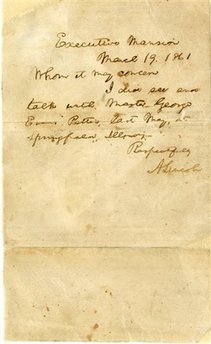 Executive Mansion
March 19. 1861
Whom it may concern
I did see and
talk with Master George
Evans Patten, last May, at
Springfield, Illinois.
Respectfully
A Lincoln